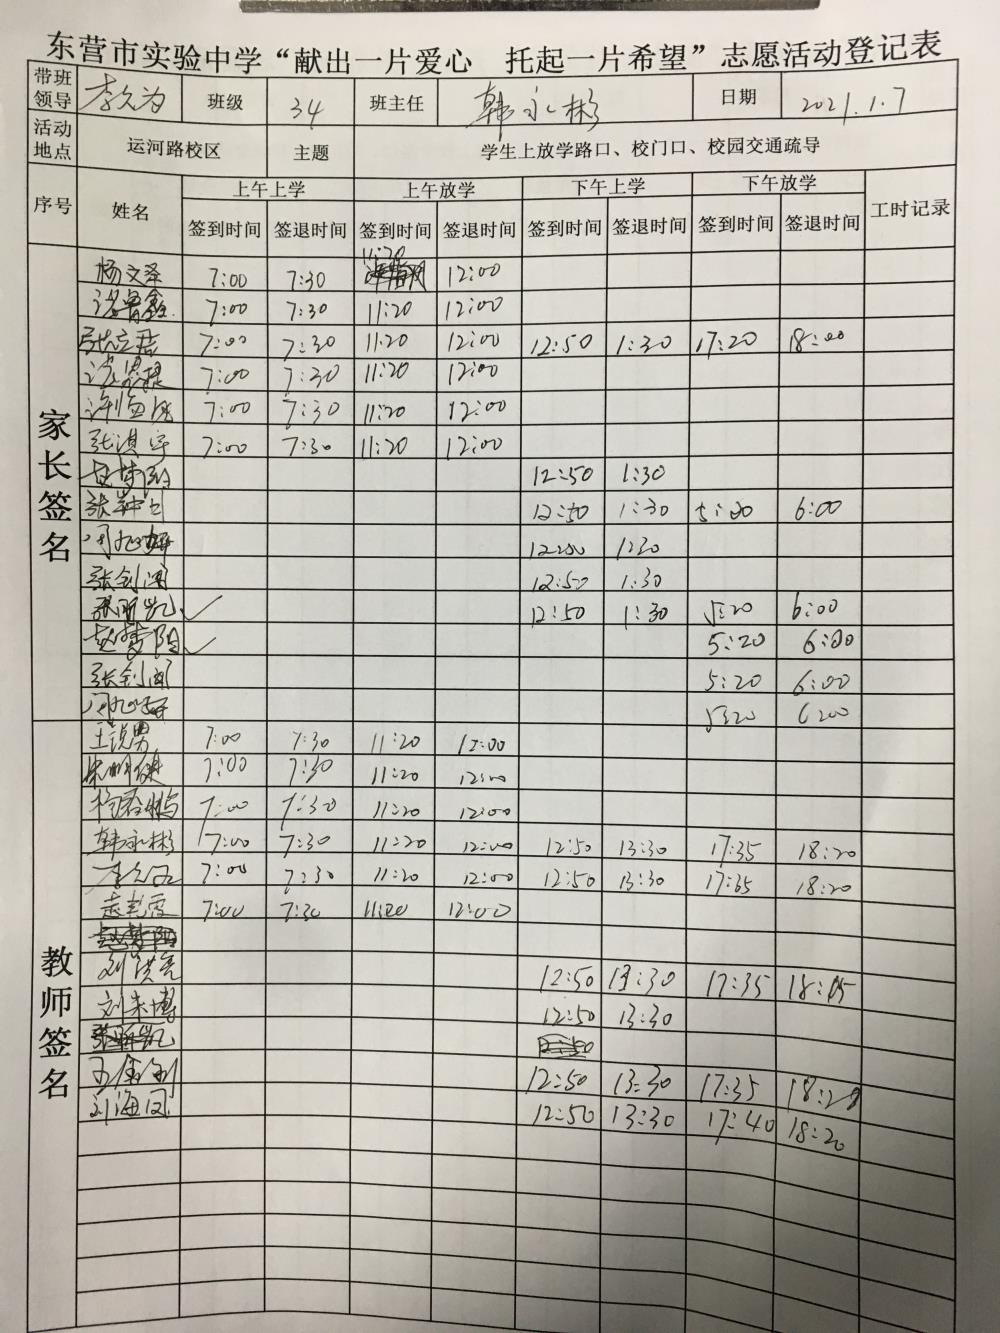 东营市实验中学“献出一片爱心 托起一片希望”志愿活动登记表
带班领导 李久为 班级 34 班主任 韩永彬 日期 2021.1.7
活动地点 运河路校区 主题 学生上放学路口、校门口、校园交通疏导
序号 姓名 上午上学 上午放学 下午上学 下午放学 工时记录
签到时间 签退时间 签到时间 签退时间 签到时间 签退时间 签到时间 签退时间
家长签名
杨文泽 7:00 7:30 11:20 12:00
7:00 7:30 11:20 12:00
张立君 7:00 7:30 11:20 12:00 12:50 1:30 17:20 18:00
7:00 7:30 11:20 12:00
7:00 7:30 11:20 12:00
张淇宇 7:00 7:30 11:20 12:00
12:50 1:30
12:50 1:30 5:20 6:00
1:30
张剑闻 12:50 1:30
张明凯 ✓ 12:50 1:30 5:20 6:00
赵梦阳 ✓ 5:20 6:00
张剑闻 5:20 6:00
5:20 6:00
教师签名
王锐男 7:00 7:30 11:20 12:00
7:00 7:30 11:20 12:00
杨春梅 7:00 7:30 11:20 12:00
韩永彬 7:00 7:30 11:20 12:00 12:50 13:30 17:35 18:20
李久为 7:00 7:30 11:20 12:00 12:50 13:30 17:35 18:20
7:00 7:30 11:20 12:00
刘洪亮 12:50 13:30 17:35 18:15
刘朱博 12:50 13:30
12:50 13:30 17:35 18:20
刘海凤 12:50 13:30 17:40 18:20